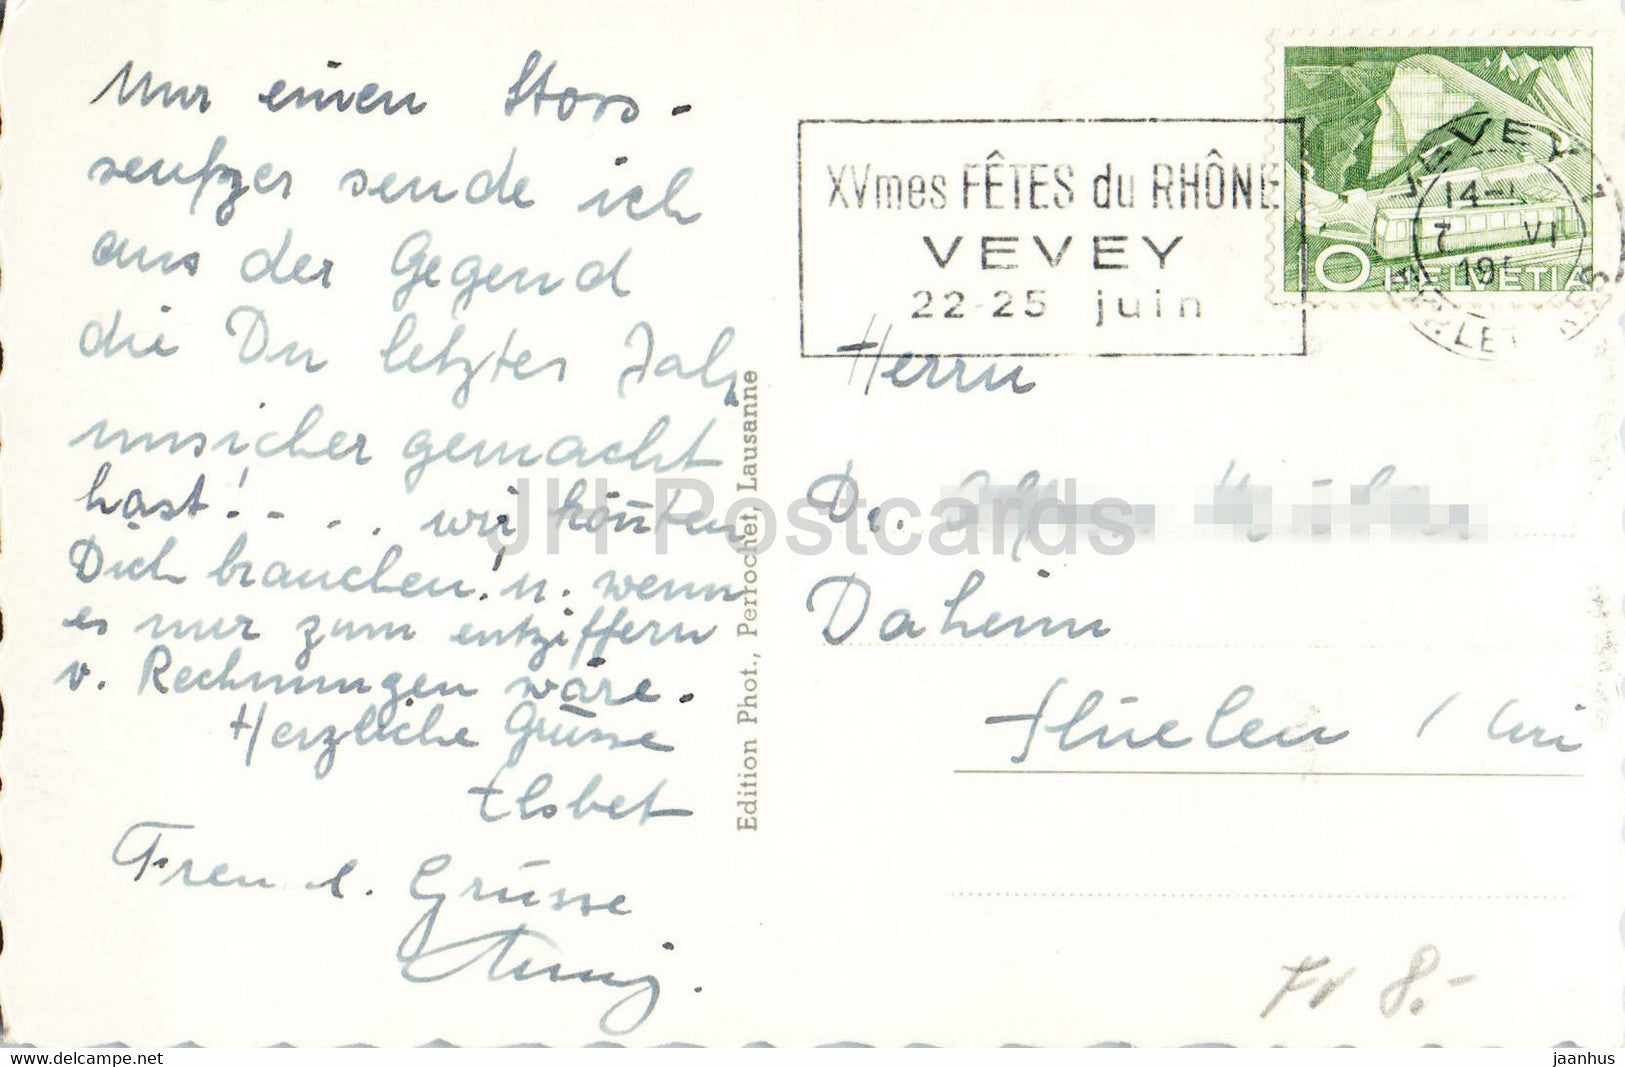 Nur einen Stoss-
seufzer sende ich
aus der Gegend
die Du letztes Jahr
unsicher gemacht
hast! - . . wir könnten
Dich brauchen! u. wenn
es nur zum entziffern
v. Rechnungen wäre.
Herzliche Grüsse
Elsbet
Freu l. Grüsse
Edition Phot., Perrochet, Lausanne
XVmes FÊTES du RHÔNE
VEVEY
22-25 juin
VEVEY 1
14-
7 VI
195
10 HELVETIA
Herrn
Dr.
Daheim
Flüelen / Uri
Fr 8.-
JH Postcards
oldthing.ch
jaanhus